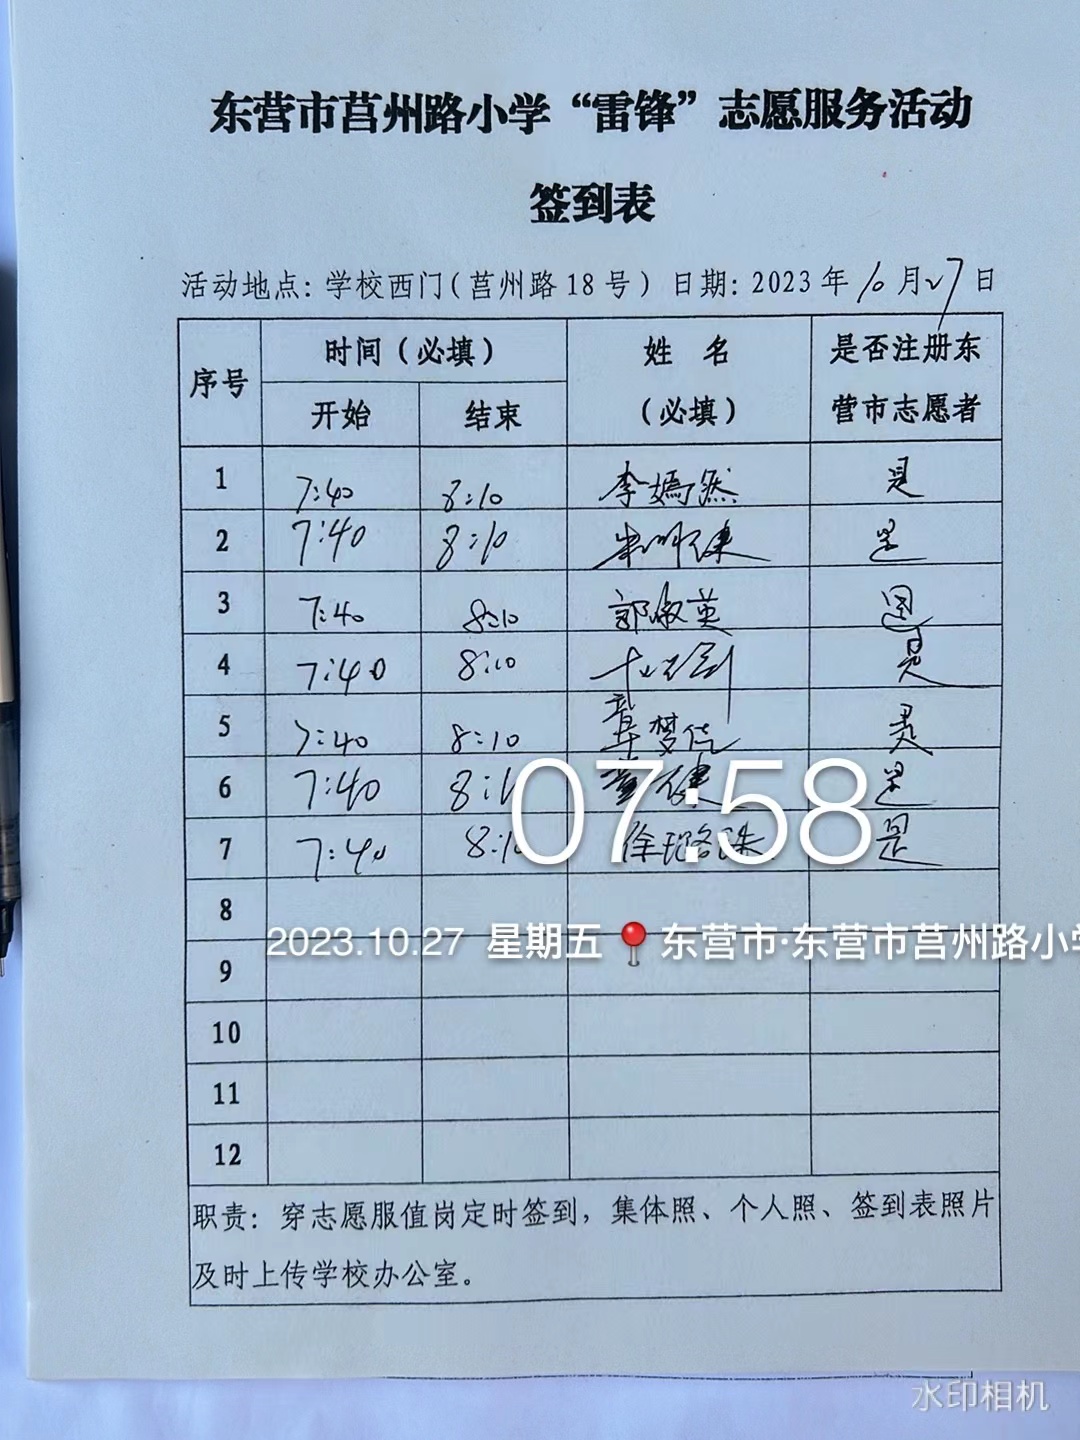 东营市莒州路小学“雷锋”志愿服务活动
签到表
活动地点：学校西门（莒州路18号） 日期：2023年10月27日
序号 时间（必填） 姓 名 是否注册东
开始 结束 （必填） 营市志愿者
1 7:40 8:10 李嫣然 是
2 7:40 8:10 是
3 7:40 8:10 郭淑英 是
4 7:40 8:10 是
5 7:40 8:10 章梦佳 是
6 7:40 8:1 董健 是
7 7:40 8:10 徐珞珠 是
07:58
8
2023.10.27 星期五 东营市·东营市莒州路小学
9
10
11
12
职责：穿志愿服值岗定时签到，集体照、个人照、签到表照片
及时上传学校办公室。
水印相机